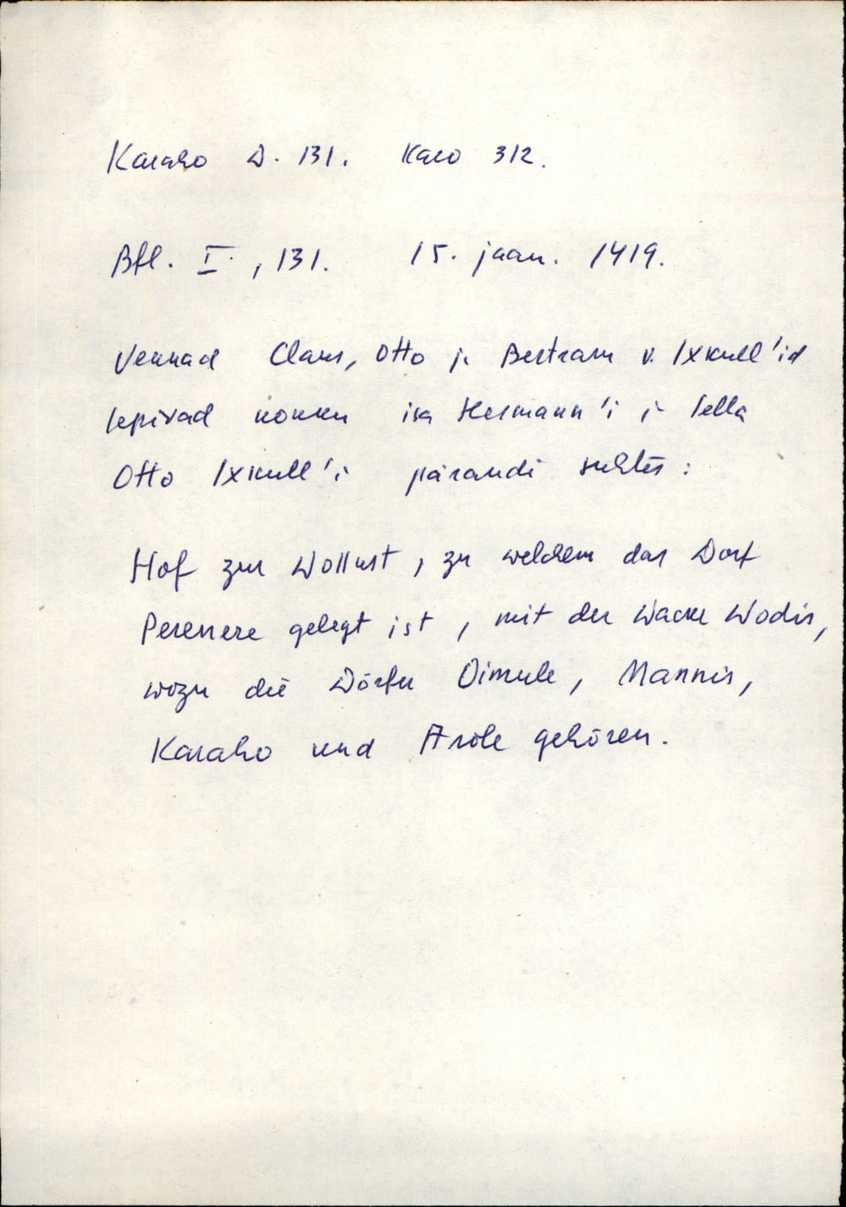 Karaho D. 131. Karo 312.
Bfl. I., 131. 15. jaan. 1419.
Vennad Claus, Otto j. Bertram v. Ixkull'id
lepivad kokku isa Hermann'i j. lella
Otto Ixkull'i pärandi suhtes:
Hof zur Wollust, zu welchem das Dorf
Perenere gelegt ist, mit der Wacke Wodis,
wozu die Dörfer Oimule, Mannis,
Karaho und Arole gehören.